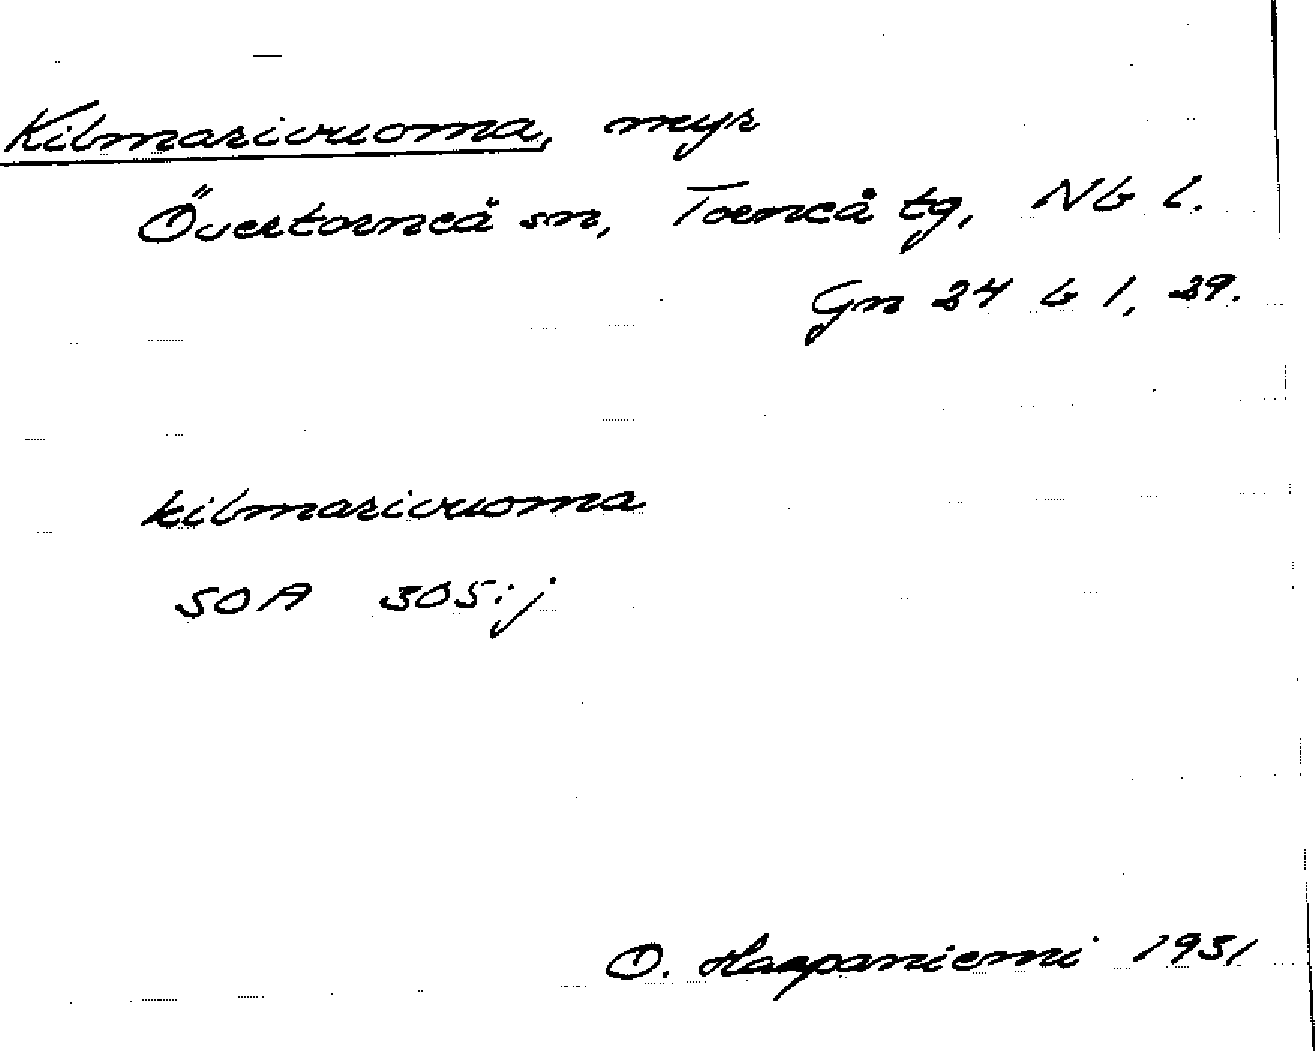 Kilmarivuoma, myr
Övertorneå sn, Torneå tg, Nb l.
Gn 24 b 1, 29.
kilmarivuoma
SOA 305:j
O. Haapaniemi 1931